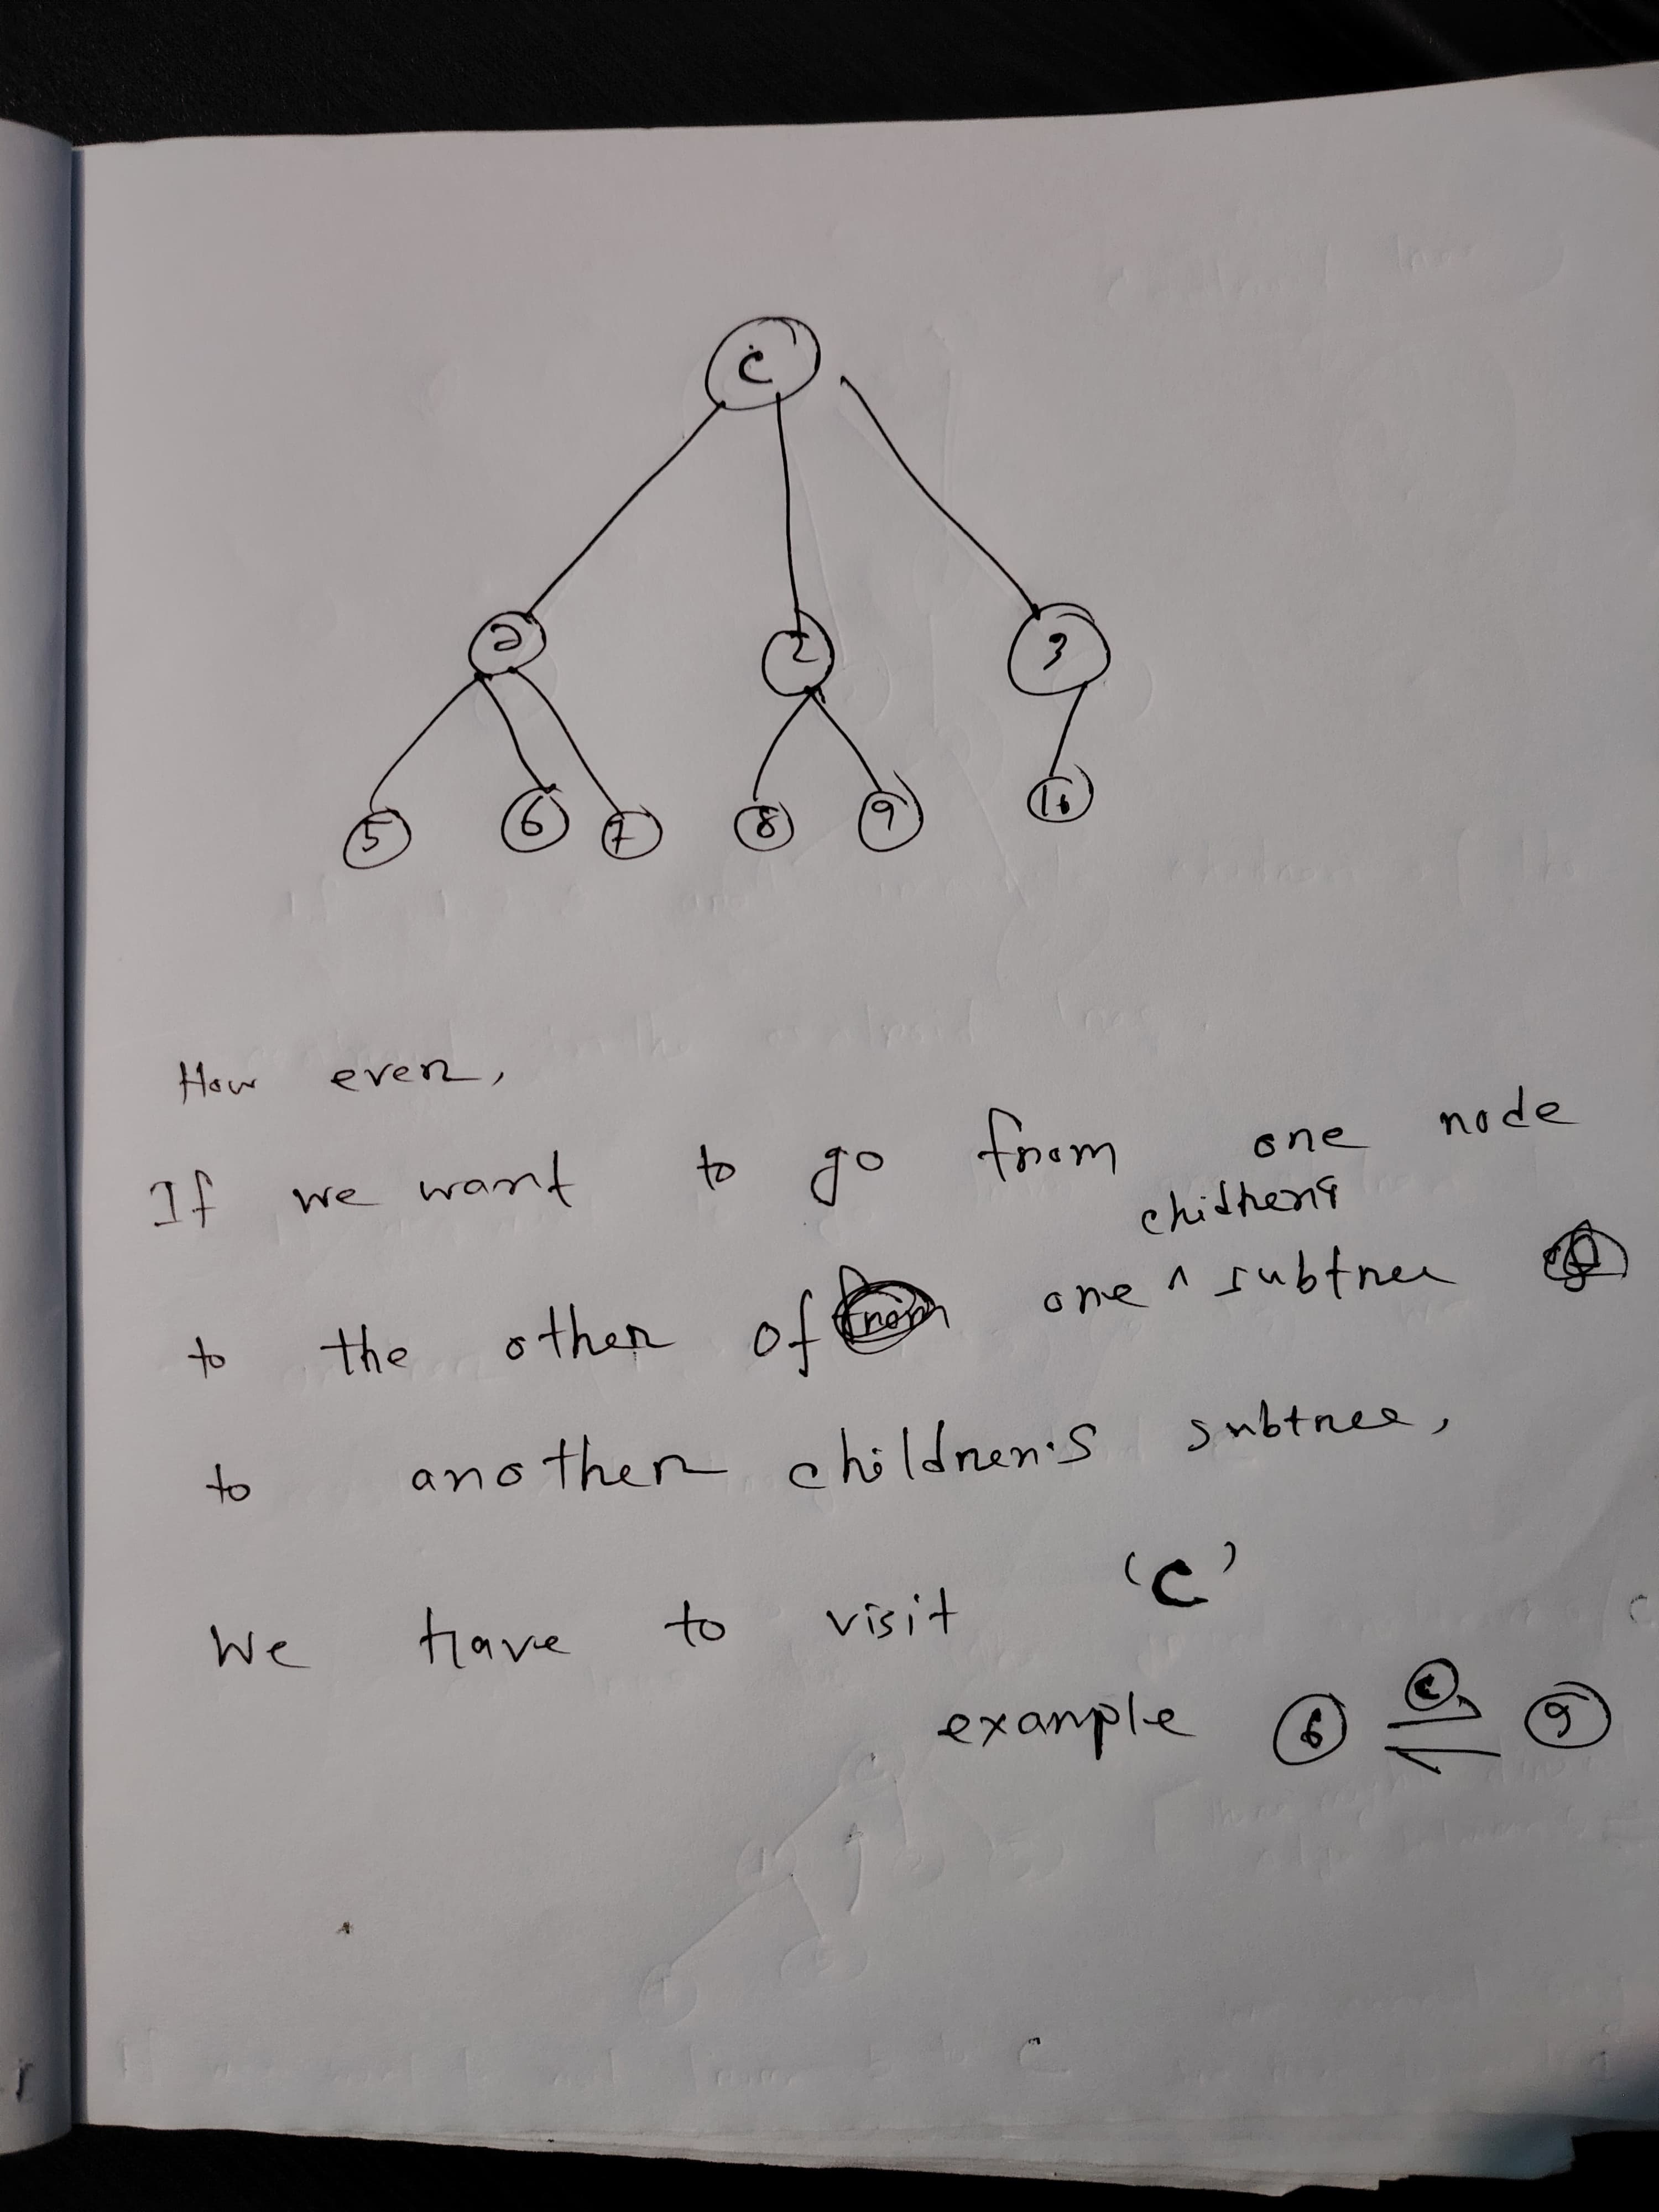 C
2 2 3
5 6 7 8 9 10
How ever,
If we want to go from one node
children's
to the other of one ^ subtree
to another children's subtree,
We have to visit 'C'
example 6 C 9